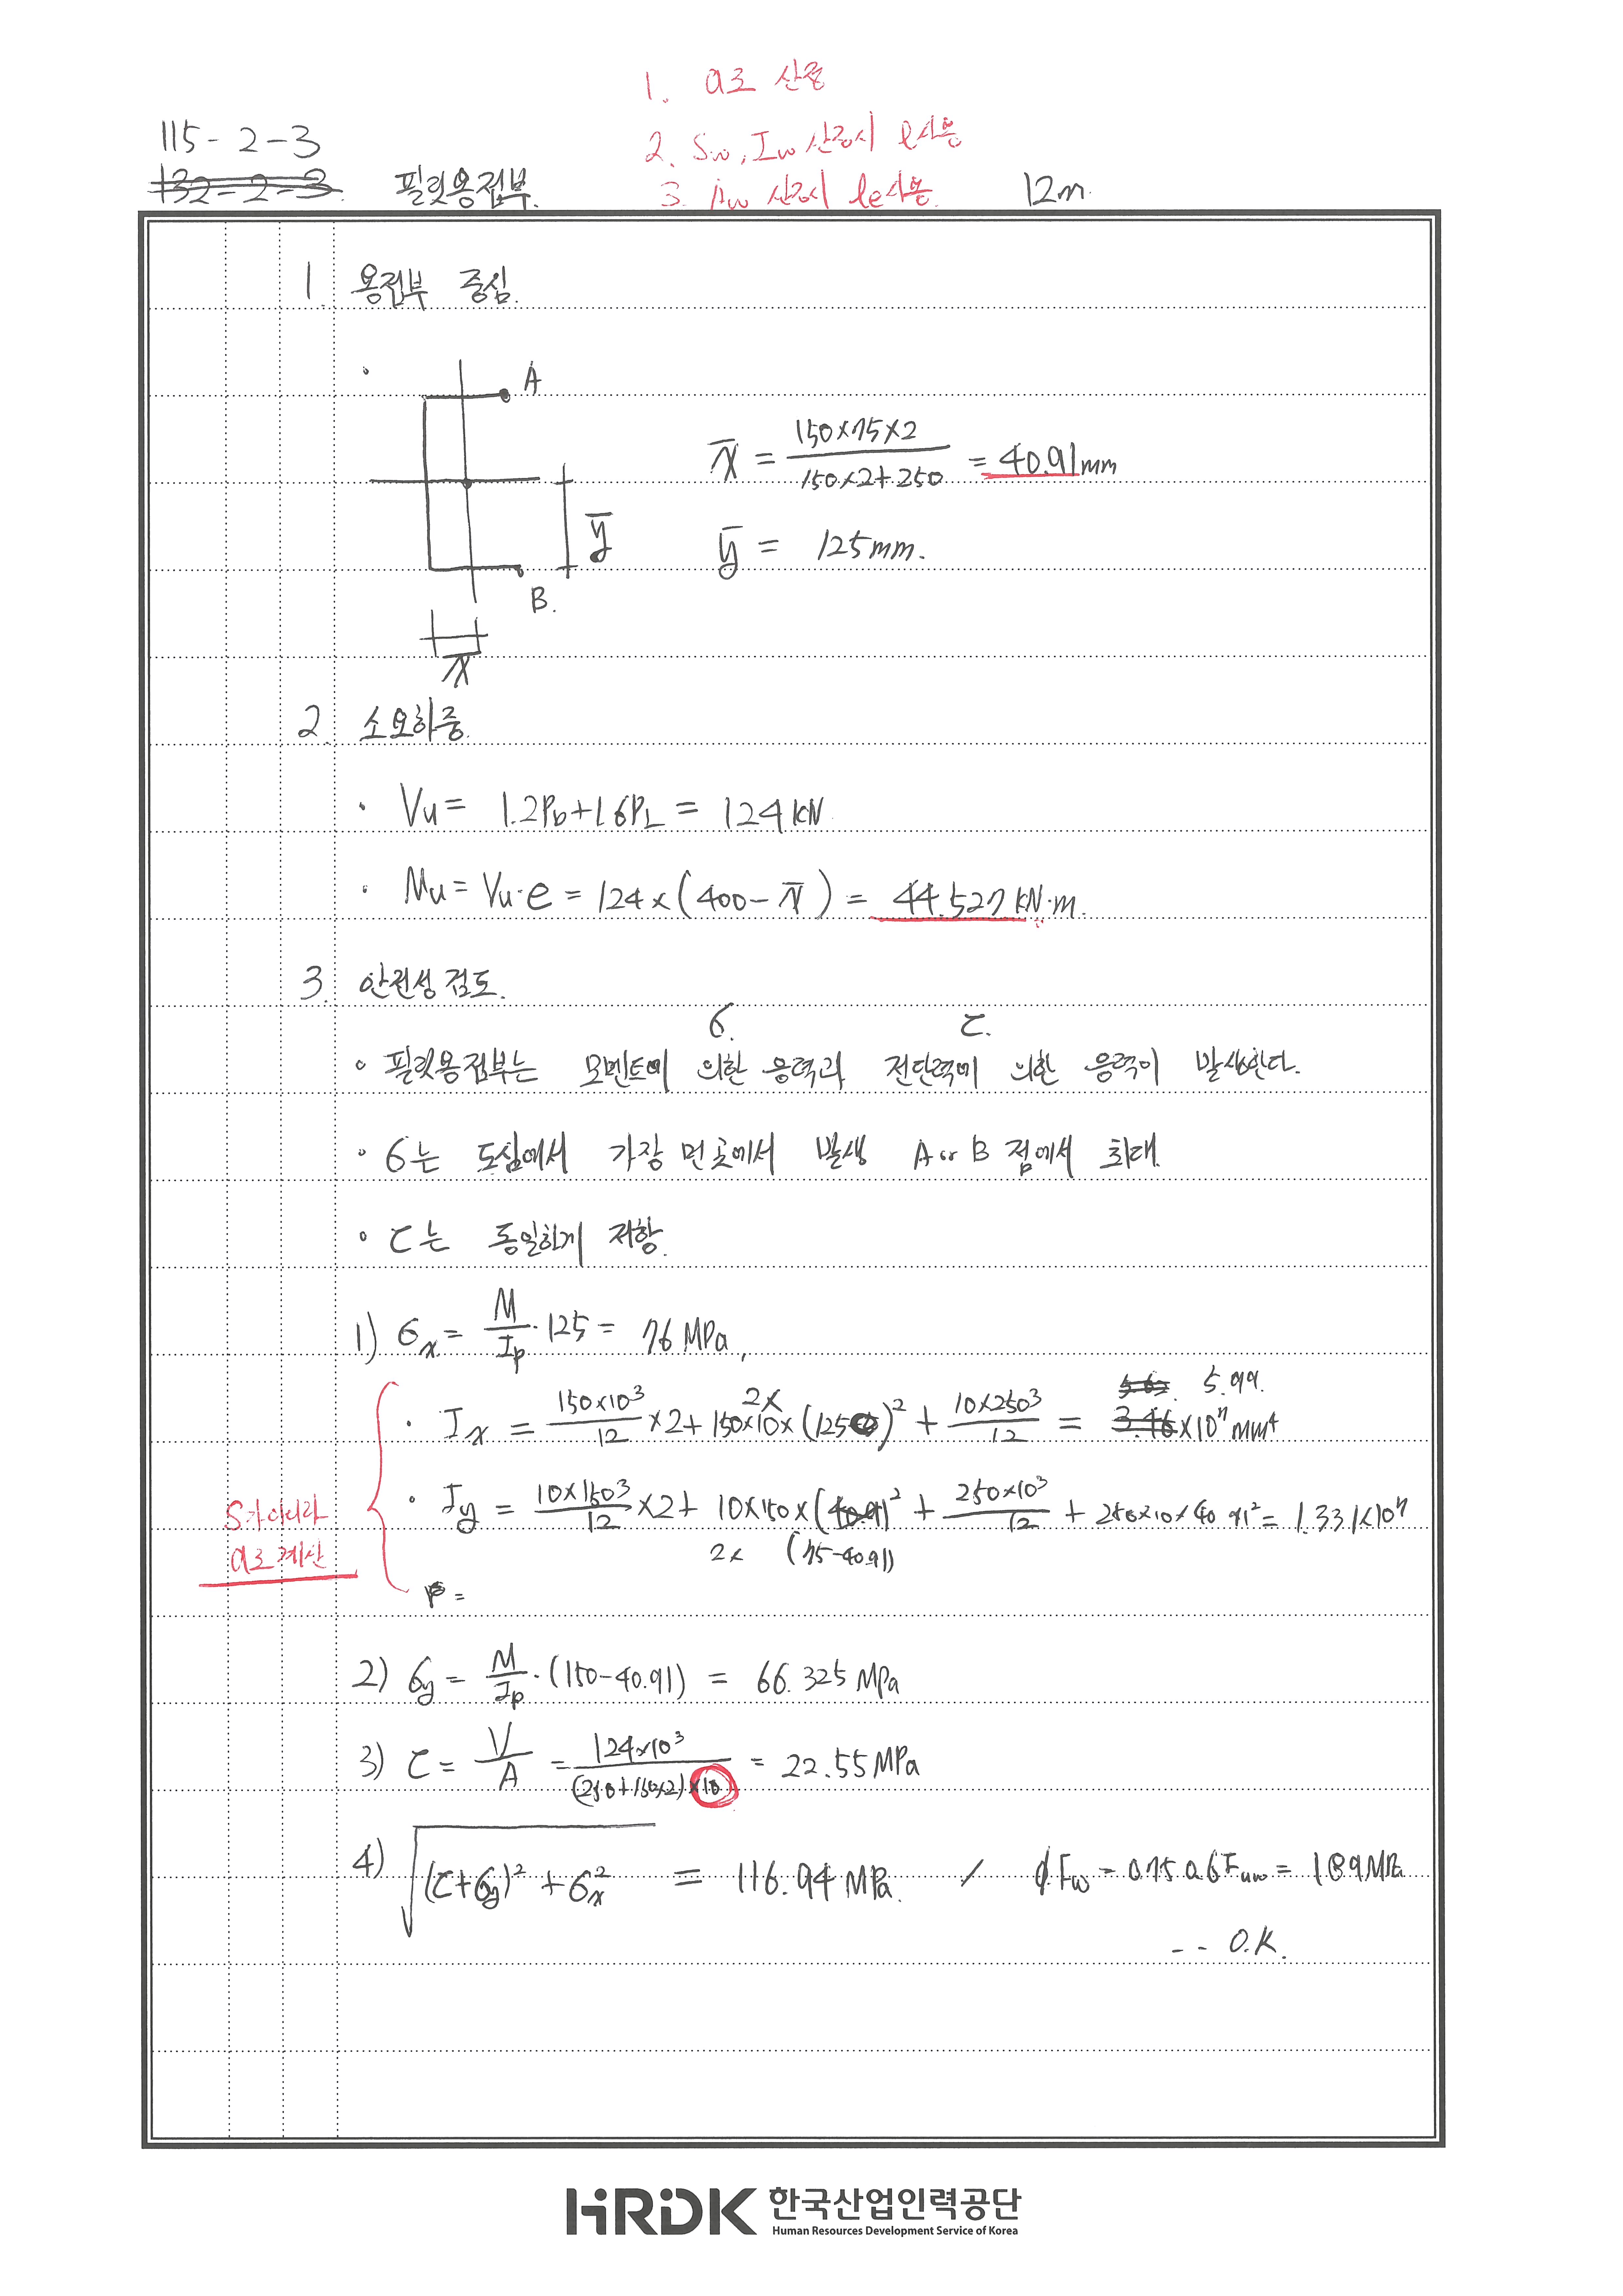 1. a로 산정
115-2-3
2. Sw, Iw 산정시 l사용
132-2-3. 필릿용접부.
3. Aw 산정시 le사용.
12m.
1. 용접부 중심.
A
x̄ = 150×75×2 / 150×2+250 = 40.91mm
ȳ
ȳ = 125mm.
B.
x̄
2. 소요하중.
· Vu = 1.2PD+1.6PL = 124kN
· Mu = Vu·e = 124×(400-x̄) = 44.527kN·m.
3. 안전성 검토.
σ. τ.
∘ 필릿용접부는 모멘트에 의한 응력과 전단력에 의한 응력이 발생한다.
∘ σ는 도심에서 가장 먼곳에서 발생 A or B 점에서 최대.
∘ τ는 동일하게 저항.
1) σx = M/Ip · 125 = 76 MPa,
5.99.
· Ix = 150×10³/12 ×2+ 2× 150×10×(125)² + 10×250³/12 = 3.46×10⁷mm⁴
· Iy = 10×150³/12 ×2+ 10×150×(40.91)² + 250×10³/12 + 250×10×40.91² = 1.331×10⁷
2× (75-40.91)
S가 아니라
a로 계산
P =
2) σy = M/Ip · (150-40.91) = 66.325 MPa
3) τ = V/A = 124×10³/(250+150×2)×10 = 22.55MPa
4) √(τ+σy)²+σx² = 116.94 MPa. / ϕFw = 0.75 0.6Fuw = 189MPa
-- O.K.
HRDK 한국산업인력공단
Human Resources Development Service of Korea